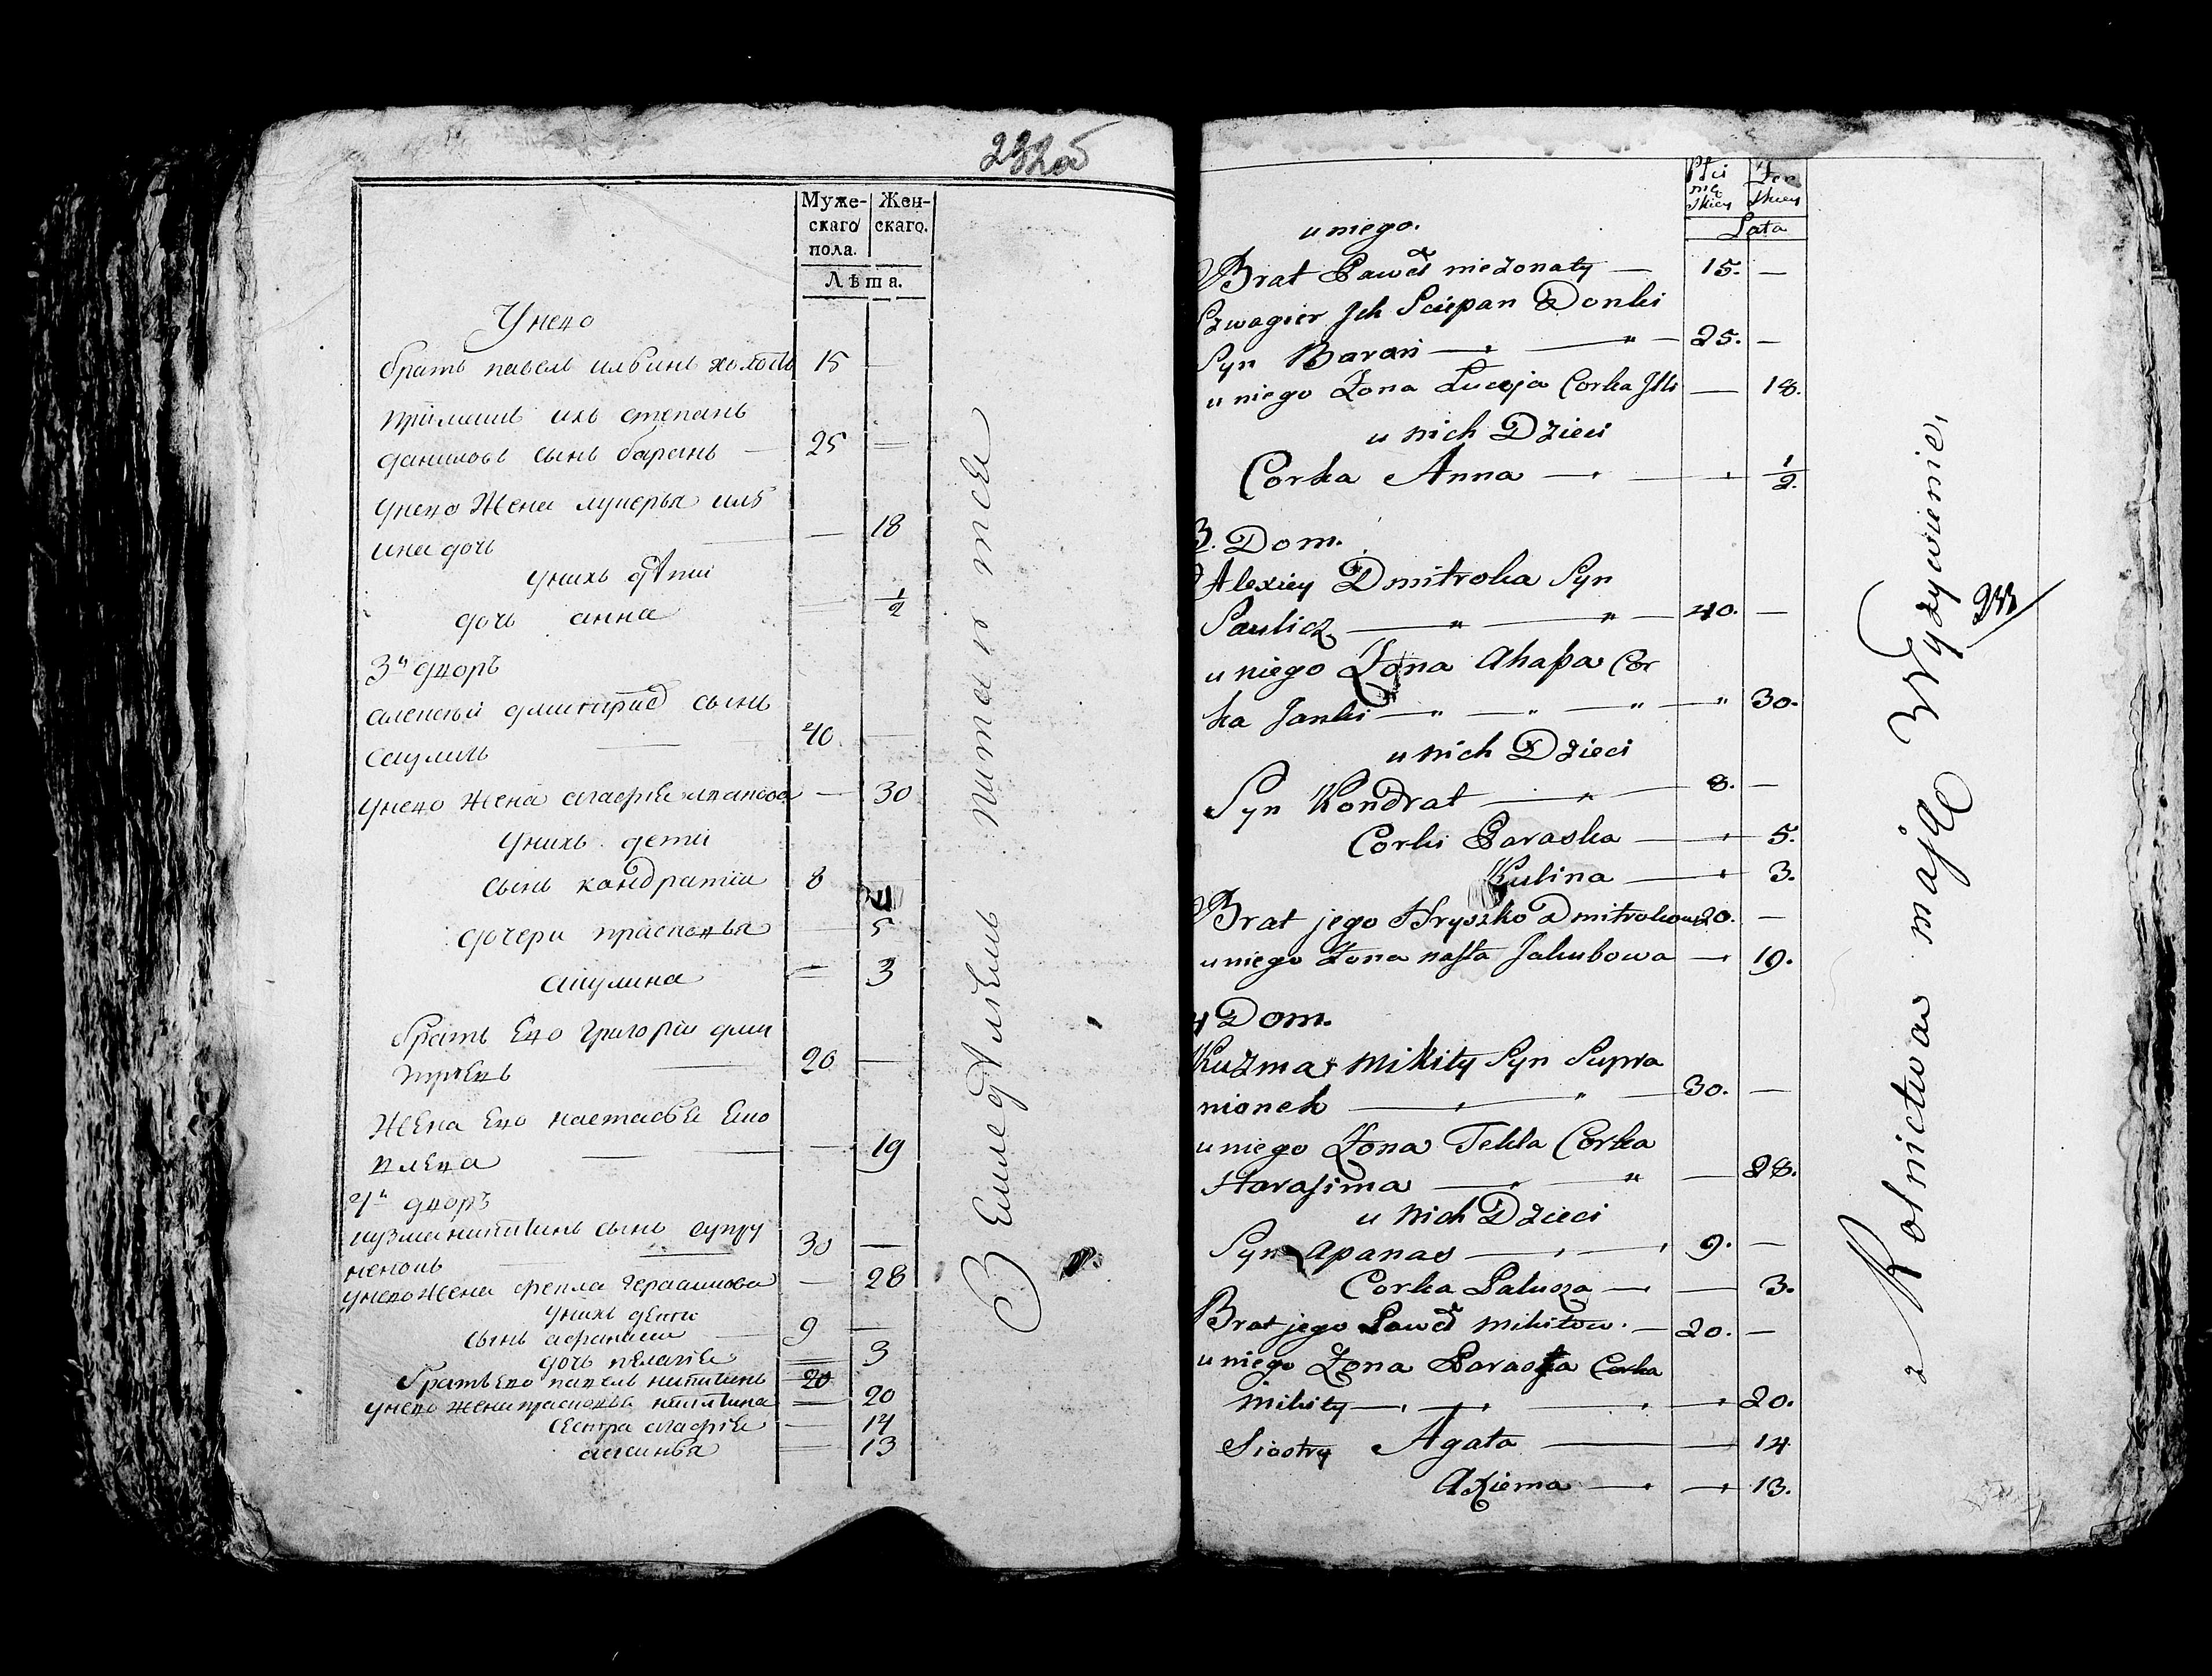 232об
Муже-
скаго
пола.
Жен-
скаго.
Лѣта.
У него
братъ павелъ ильинъ холостъ 15 —
ихъ степанъ
сынъ баранъ — 25 —
У него жена иль
ина дочь — 18
У нихъ дѣти
дочь анна — 1/2
3й дворъ
сынъ
сауличь 40 —
У него жена агафья — 30
У нихъ дети
сынъ кондратiй 8
дочери 5
акулина — 3
братъ Его григорiй дми
20 —
жена Его настасья
— 19
4й дворъ
кузма никитинъ сынъ супру
30 —
У него жена фекла герасимова — 28
У нихъ дети
сынъ афанасiй 9 —
дочь пелагея — 3
братъ Его павелъ никитинъ 20
У него жена никитина — 20
сестра агафья — 14
аксинья — 13
Земледѣлiемъ питаются
Płci
mę
skiey
Żen
skiey
Lata
u niego.
Brat Paweł nieżonaty — 15. —
Szwagier Jch Sciepan Donki
Syn Baran — 25. —
u niego Żona Lucyja Corka Jlli — 18.
u nich Dzieci
Corka Anna — 1/2.
3. Dom.
Alexiey Dmitroka Syn
Saulicz — 40. —
u niego Żona Ahapa Cor
ka Janki — 30.
u nich Dzieci
Syn Kondrat — 8. —
Corki Paraska — 5.
Kulina — 3.
Brat jego Hryszko Dmitrokow 20. —
u niego Żona nasta Jakubowa — 19.
4 Dom.
Kuzma Mikity Syn Supra
nionek — 30. —
u niego Żona Tekla Corka
Harasima — 28.
u nich Dzieci
Syn Apanas — 9. —
Corka Paluza — 3.
Brat jego Paweł Mikitow. — 20. —
u niego Żona Paraska Corka
Mikity — 20.
Siostry Agata — 14
Axiema — 13.
z Rolnictwa mają Wyżywienie,
233